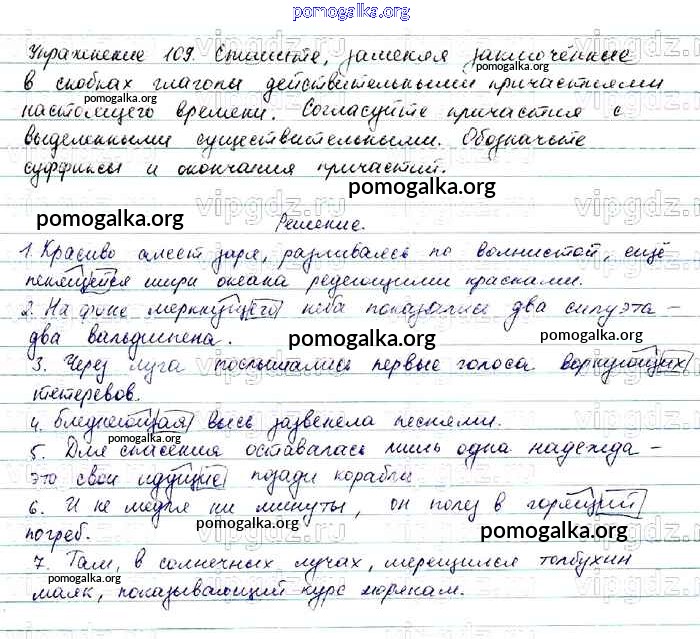 pomogalka.org
Упражнение 109. Спишите, заменяя заключённые
в скобках глаголы действительными причастиями
настоящего времени. Согласуйте причастия с
выделенными существительными. Обозначьте
суффиксы и окончания причастий.
Решение.
1. Красиво алеет заря, разливаясь по волнистой, ещё
пенящейся шири океана редеющими красками.
2. На фоне меркнущего неба показались два силуэта –
два вальдшнепа.
3. Через луга послышались первые голоса воркующих
тетеревов.
4. Бледнеющая высь зазвенела песнями.
5. Для спасения оставалась лишь одна надежда –
это свои идущие позади корабли.
6. И не медля ни минуты, он полез в горящий
погреб.
7. Там, в солнечных лучах, мерещился толбухин
маяк, показывающий курс морякам.
pomogalka.org
pomogalka.org
pomogalka.org
pomogalka.org
pomogalka.org
pomogalka.org
pomogalka.org
pomogalka.org
pomogalka.org
pomogalka.org
pomogalka.org
pomogalka.org
pomogalka.org
vipgdz.ru
vipgdz.ru
vipgdz.ru